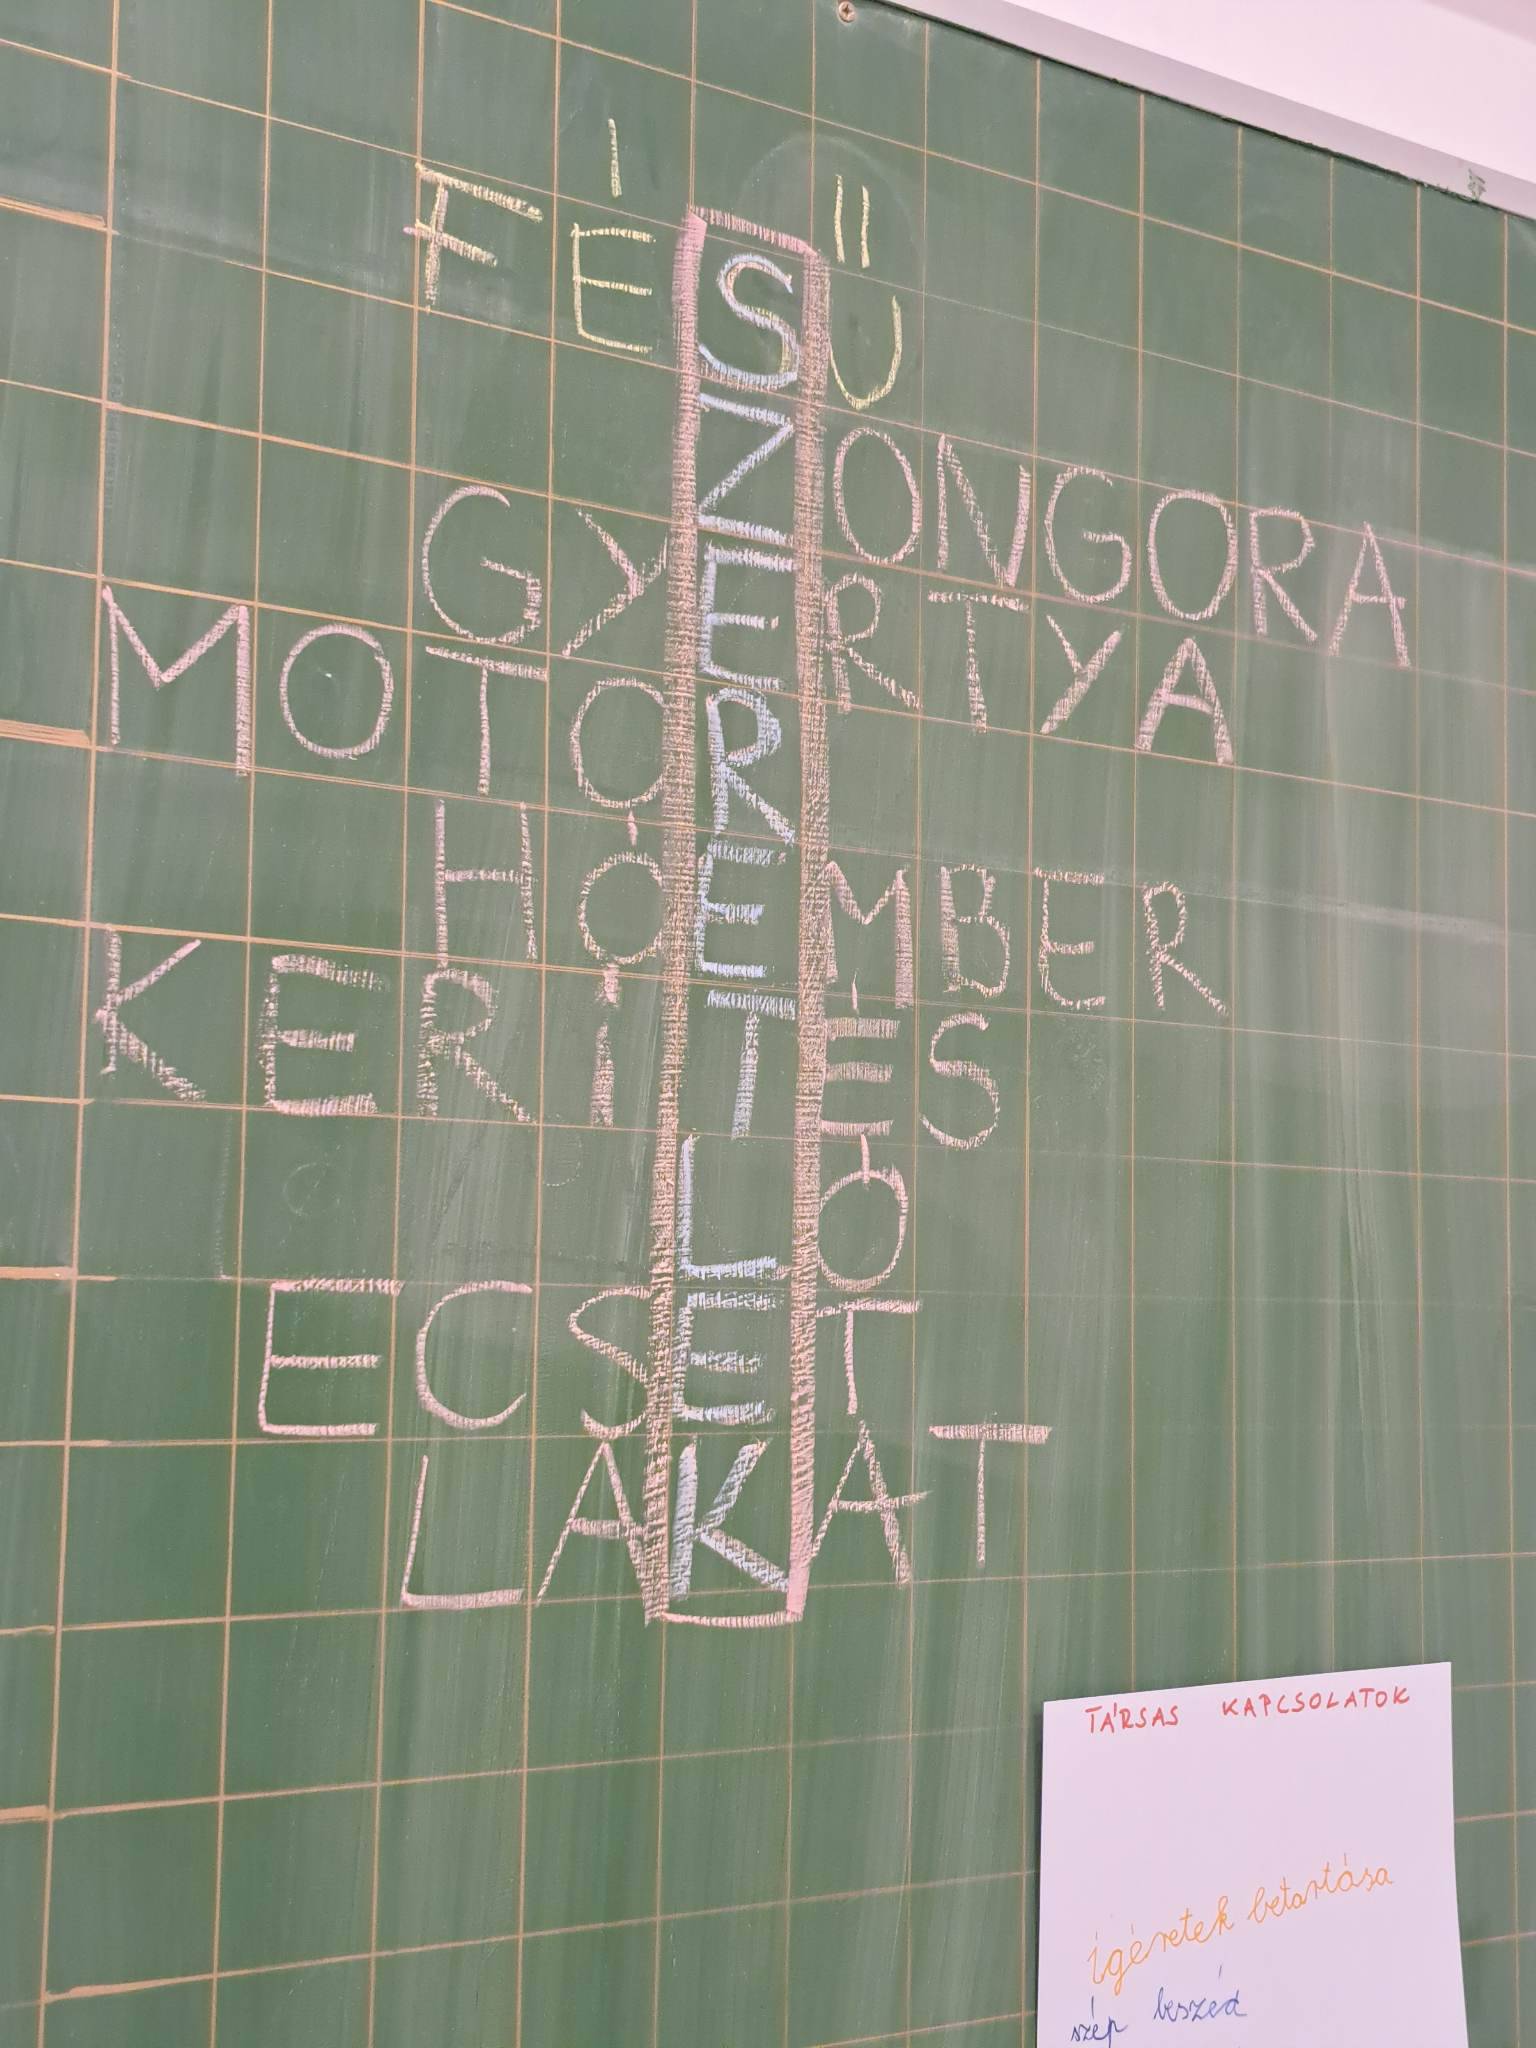 FÉSŰ
ZONGORA
GYERTYA
MOTOR
HÓEMBER
KERÍTÉS
LÓ
ECSET
LAKAT
TÁRSAS KAPCSOLATOK
ígéretek betartása
szép beszéd